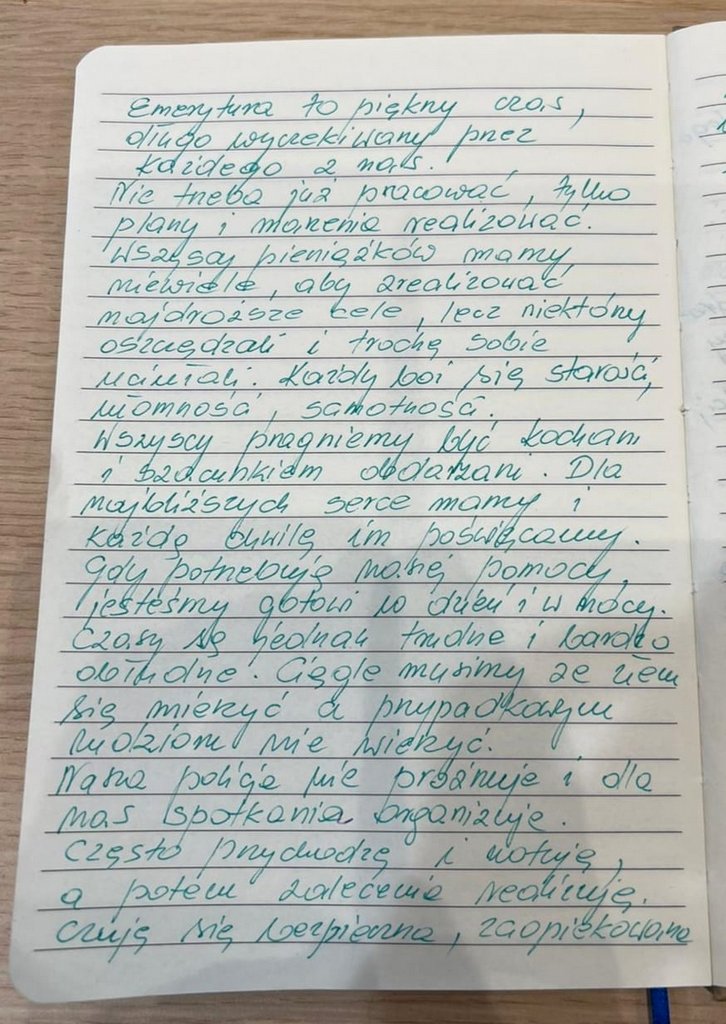 Emerytura to piękny czas,
długo wyczekiwany przez
każdego z nas.
Nie trzeba już pracować, tylko
plany i marzenia realizować.
Wszyscy pieniążków mamy
niewiele, aby zrealizować
najdroższe cele, lecz niektórzy
oszczędzali i trochę sobie
uciułali. Każdy boi się starości,
ułomności, samotności.
Wszyscy pragniemy być kochani
i szacunkiem obdarzani. Dla
najbliższych serce mamy i
każdą chwilę im poświęcamy.
Gdy potrzebują naszej pomocy,
jesteśmy gotowi w dzień i w nocy.
Czasy są jednak trudne i bardzo
obłudne. Ciągle musimy ze złem
się mierzyć a przypadkowym
ludziom nie wierzyć.
Nasza policja nie próżnuje i dla
nas spotkania organizuje.
Często przychodzę i notuję,
a potem zalecenia realizuję.
Czuję się bezpieczna, zaopiekowana